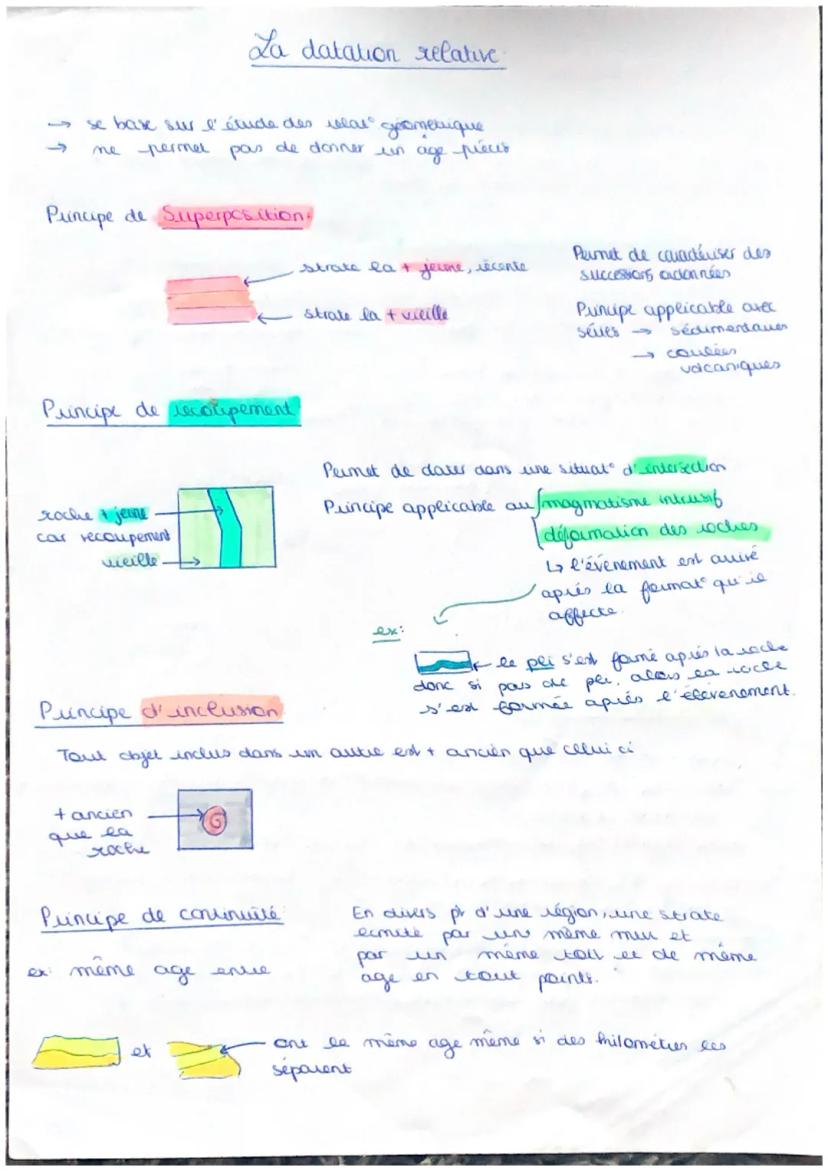 La datation relative
→ se base sur l'étude des relat° géométrique
→ ne permet pas de donner un âge précis
Principe de Superposition:
strate la + jeune, récente
strate la + vieille
Permet de caractériser des
successions ordonnées
Principe applicable avec
séries → sédimentaires
→ coulées
volcaniques
Principe de recoupement
Permet de dater dans une situat° d'intersection
Principe applicable au magmatisme intrusif
déformation des roches
↳ l'évenement est arrivé
après la format° qu'il
affecte.
roche + jeune
car recoupement
vieille
ex:
le pli s'est formé après la roche
donc si pas de pli, alors la roche
s'est formée après l'évenement.
Principe d'inclusion
Tout objet inclus dans un autre est + ancien que celui ci
+ ancien
que la
roche
Principe de continuité
En divers pt d'une région, une strate
par un même mur et
par un même toit et de même
age en tout points.
ex même age entre
et
ont le même age même si des kilomètres les
séparent